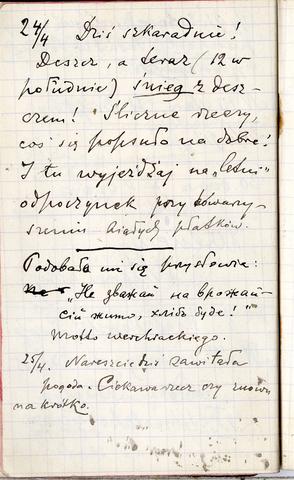 24/4 Dziś szkaradnie!
Deszcz, a teraz (12 w
południe) śnieg z desz-
czem! Śliczne rzeczy,
coś się popsuło na dobre!
I tu wyjeżdżaj na „letni”
odpoczynek przy towarzy-
szeniu białych płatków.
Podobało mi się przysłowie:
„Не зважай на врожай-
сій жито, хліб буде!”
Motto werchrackiego.
25/4. Nareszcie dziś zawitała
pogoda. Ciekawa rzecz czy znowu
na krótko.